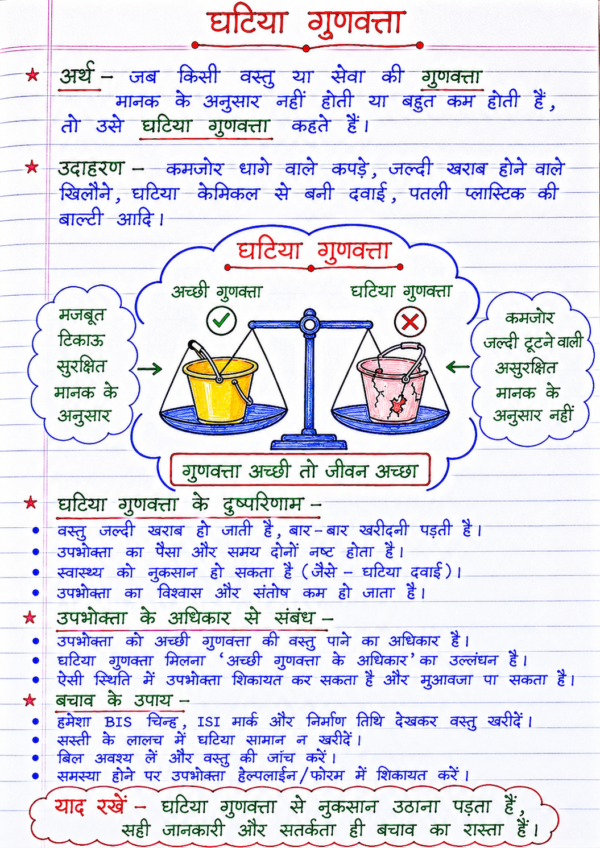 घटिया गुणवत्ता
★ अर्थ – जब किसी वस्तु या सेवा की गुणवत्ता
मानक के अनुसार नहीं होती या बहुत कम होती है,
तो उसे घटिया गुणवत्ता कहते हैं।
★ उदाहरण – कमजोर धागे वाले कपड़े, जल्दी खराब होने वाले
खिलौने, घटिया केमिकल से बनी दवाई, पतली प्लास्टिक की
बाल्टी आदि।
घटिया गुणवत्ता
अच्छी गुणवत्ता
घटिया गुणवत्ता
मजबूत
टिकाऊ
सुरक्षित
मानक के
अनुसार
कमजोर
जल्दी टूटने वाली
असुरक्षित
मानक के
अनुसार नहीं
गुणवत्ता अच्छी तो जीवन अच्छा
★ घटिया गुणवत्ता के दुष्परिणाम –
• वस्तु जल्दी खराब हो जाती है, बार-बार खरीदनी पड़ती है।
• उपभोक्ता का पैसा और समय दोनों नष्ट होता है।
• स्वास्थ्य को नुकसान हो सकता है (जैसे – घटिया दवाई)।
• उपभोक्ता का विश्वास और संतोष कम हो जाता है।
★ उपभोक्ता के अधिकार से संबंध –
• उपभोक्ता को अच्छी गुणवत्ता की वस्तु पाने का अधिकार है।
• घटिया गुणवत्ता मिलना ‘अच्छी गुणवत्ता के अधिकार’ का उल्लंघन है।
• ऐसी स्थिति में उपभोक्ता शिकायत कर सकता है और मुआवजा पा सकता है।
★ बचाव के उपाय –
• हमेशा BIS चिन्ह, ISI मार्क और निर्माण तिथि देखकर वस्तु खरीदें।
• सस्ती के लालच में घटिया सामान न खरीदें।
• बिल अवश्य लें और वस्तु की जाँच करें।
• समस्या होने पर उपभोक्ता हेल्पलाईन/फोरम में शिकायत करें।
याद रखें – घटिया गुणवत्ता से नुकसान उठाना पड़ता है,
सही जानकारी और सतर्कता ही बचाव का रास्ता है।